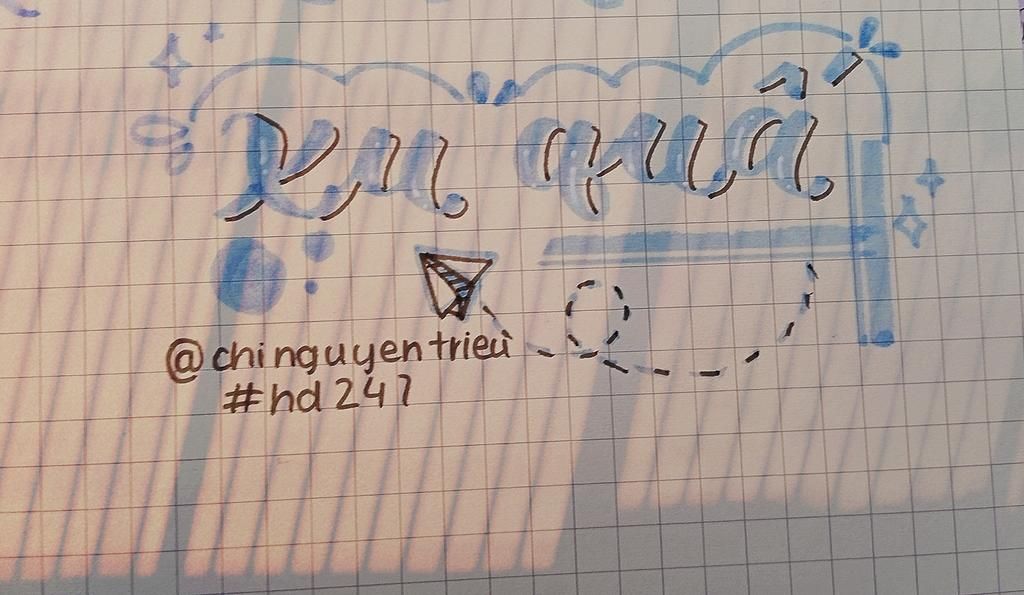 xu quấ
@chinguyentrieu
#hd247